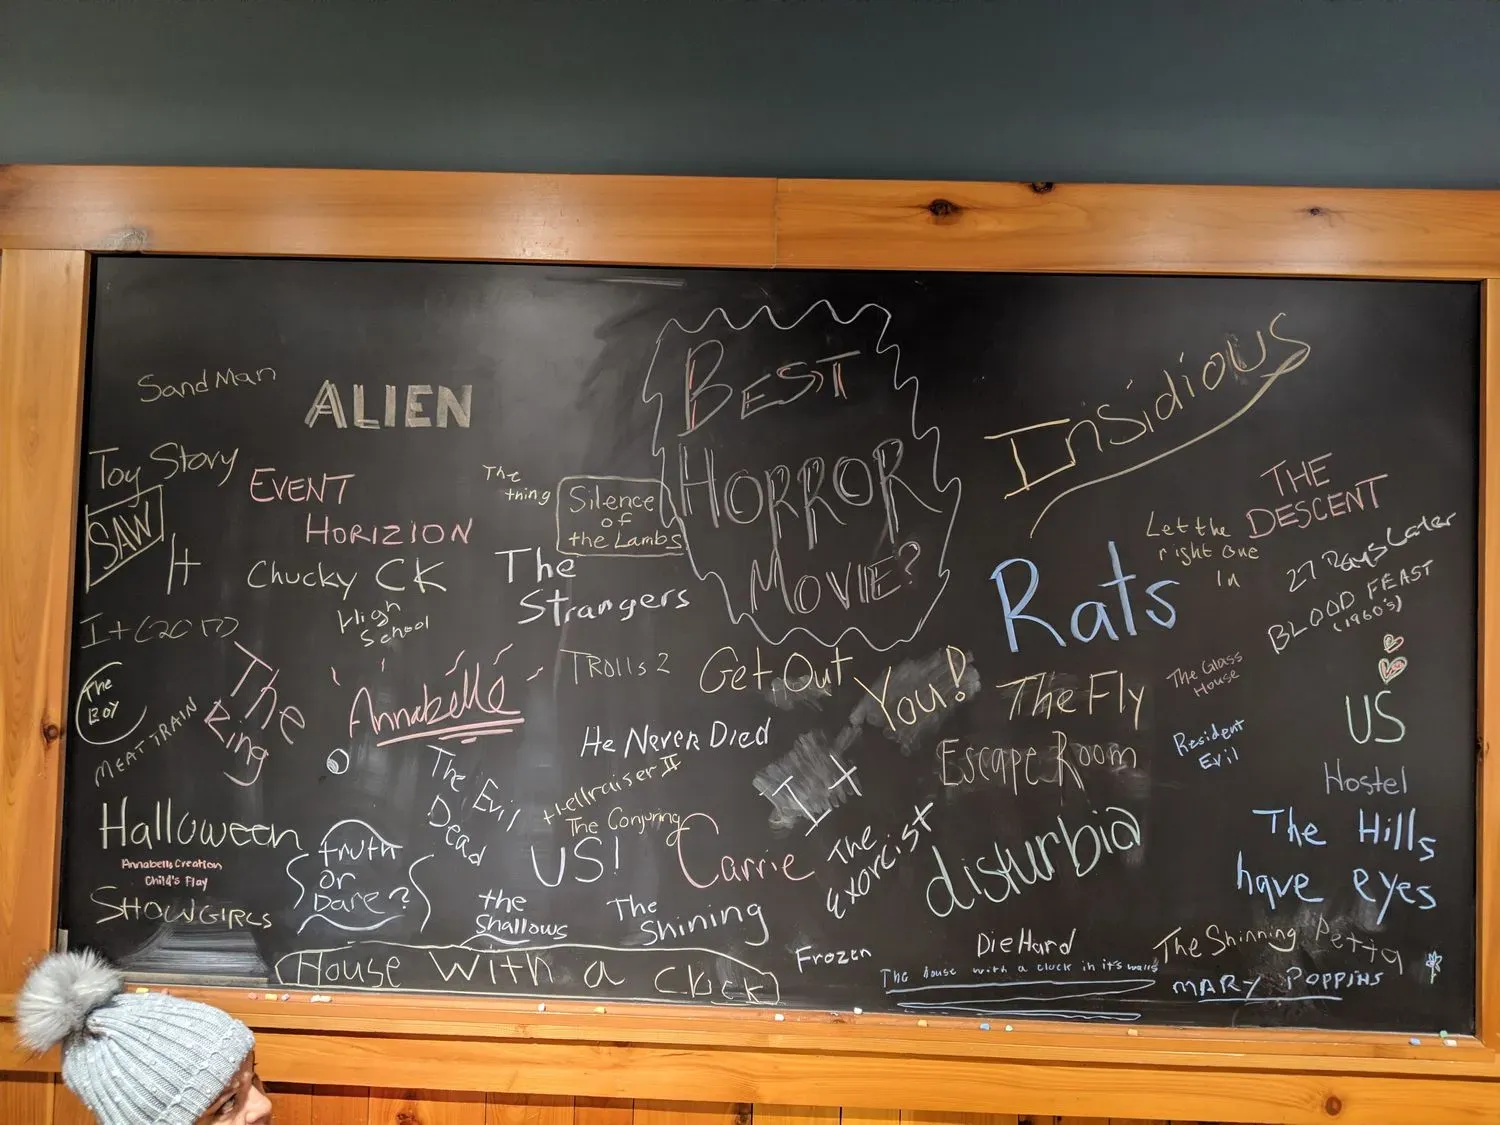 BEST
HORROR
MOVIE?
Sand Man
ALIEN
Insidious
Toy Story
EVENT
HORIZION
The
thing
Silence
of
the Lambs
THE
DESCENT
SAW
It
Chucky CK
High
School
The
Strangers
Rats
Let the
right one
In
27 Days Later
BLOOD FEAST
(1960's)
It (2017)
The
Boy
MEAT TRAIN
The
Ring
Annabelle
TROLLS 2
Get Out
You!
The Fly
The Glass
House
US
He Never Died
Escape Room
Resident
Evil
Hostel
The Evil
Dead
Hellraiser II
The Conjuring
It
Halloween
Annabells Creation
Child's Play
SHOWGIRLS
truth
or
Dare?
US!
Carrie
The
Exorcist
disturbia
The Hills
have eyes
the
Shallows
The
Shining
House With a Clock
Frozen
Die Hard
The house with a clock in it's walls
The Shinning
MARY POPPINS